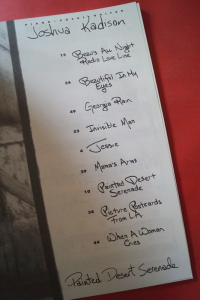 PIANO/VOCAL/GUITAR
Joshua Kadison
Beau's All Night
Radio Love Line
Beautiful In My
Eyes
Georgia Rain
Invisible Man
Jessie
Mama's Arms
Painted Desert
Serenade
Picture Postcards
From L.A.
When A Woman
Cries
Painted Desert Serenade